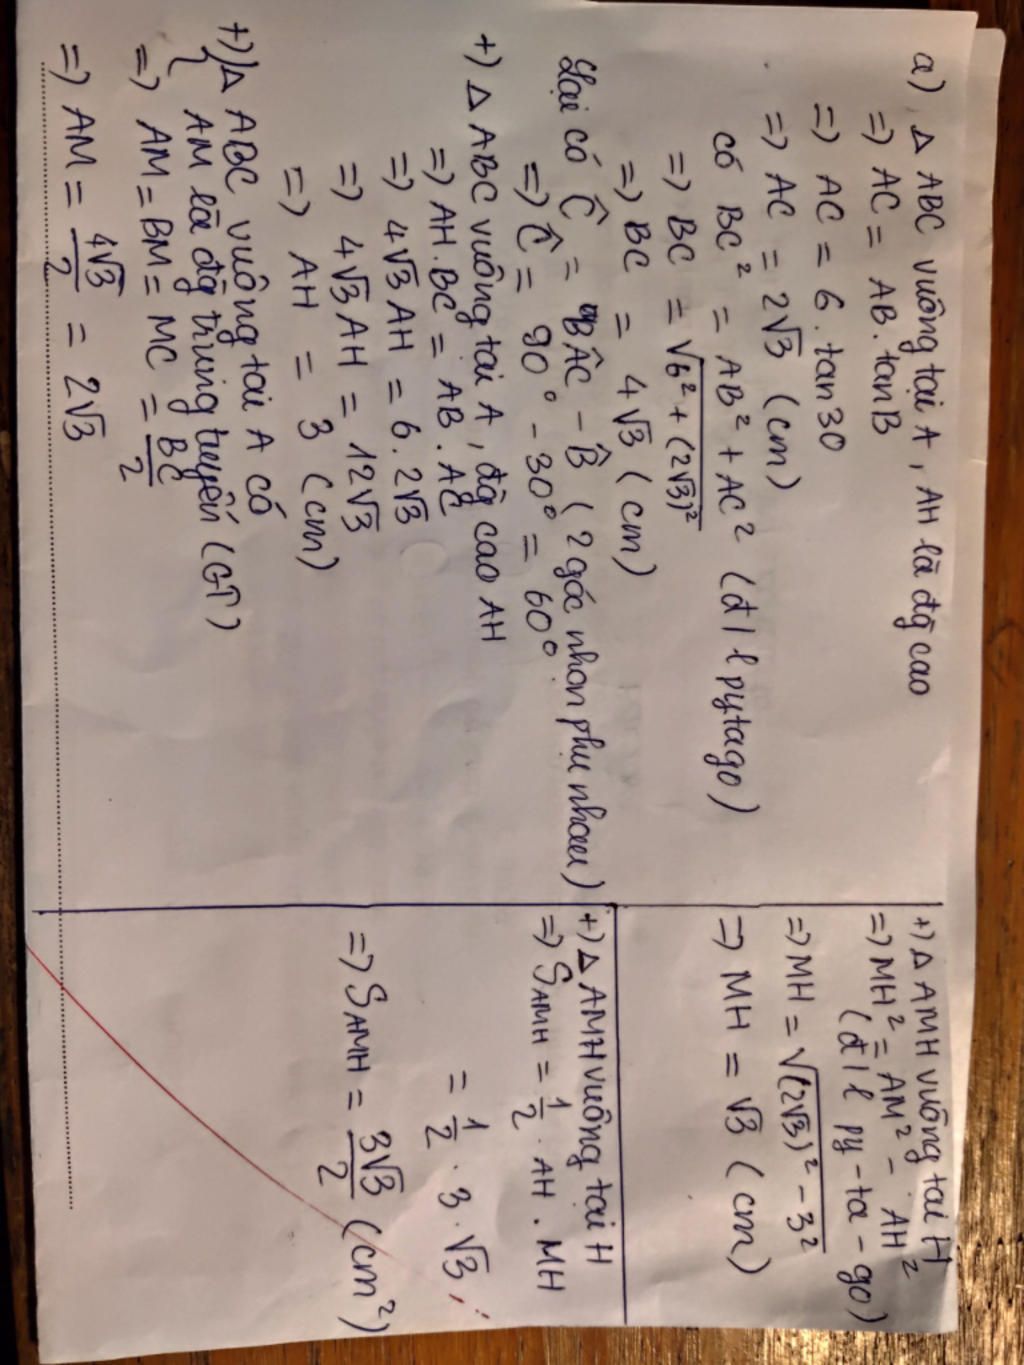 a) Δ ABC vuông tại A, AH là đg̃ cao
=) AC = AB.tanB
=) AC = 6.tan30
=) AC = 2√3 (cm)
có BC² = AB² + AC² (đ/l pytago)
=) BC = √6² + (2√3)²
=) BC = 4√3 (cm)
Lại có Ĉ = BÂC - B̂ (2 góc nhọn phụ nhau)
=) Ĉ = 90° - 30° = 60°
+) Δ ABC vuông tại A, đg̃ cao AH
=) AH.BC = AB.AC
=) 4√3AH = 6.2√3
=) 4√3AH = 12√3
=) AH = 3 (cm)
+) Δ ABC vuông tại A có
AM là đg̃ trung tuyến (GT)
=) AM = BM = MC = BC/2
=) AM = 4√3/2 = 2√3
+) Δ AMH vuông tại H
=) MH² = AM² - AH²
(đ/l py-ta-go)
=) MH = √(2√3)² - 3²
=) MH = √3 (cm)
+) Δ AMH vuông tại H
=) SAMH = 1/2 . AH . MH
= 1/2 . 3 . √3
=) SAMH = 3√3/2 (cm²)